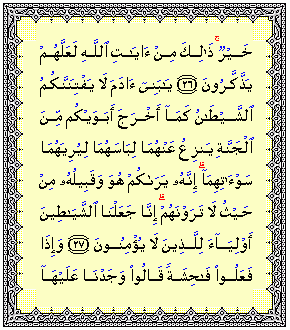 خَيْرٌۚ ذَٰلِكَ مِنْ ءَايَٰتِ ٱللَّهِ لَعَلَّهُمْ
يَذَّكَّرُونَ ٢٦ يَٰبَنِىٓ ءَادَمَ لَا يَفْتِنَنَّكُمُ
ٱلشَّيْطَٰنُ كَمَآ أَخْرَجَ أَبَوَيْكُم مِّنَ
ٱلْجَنَّةِ يَنزِعُ عَنْهُمَا لِبَاسَهُمَا لِيُرِيَهُمَا
سَوْءَٰتِهِمَآۗ إِنَّهُۥ يَرَىٰكُمْ هُوَ وَقَبِيلُهُۥ مِنْ
حَيْثُ لَا تَرَوْنَهُمْۗ إِنَّا جَعَلْنَا ٱلشَّيَٰطِينَ
أَوْلِيَآءَ لِلَّذِينَ لَا يُؤْمِنُونَ ٢٧ وَإِذَا
فَعَلُوا۟ فَٰحِشَةً قَالُوا۟ وَجَدْنَا عَلَيْهَآ